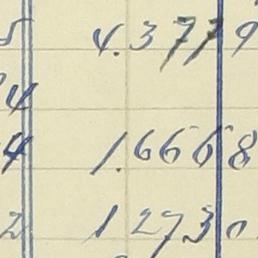 5 4.377 9
4
4 1.666 8
2 1 273 0